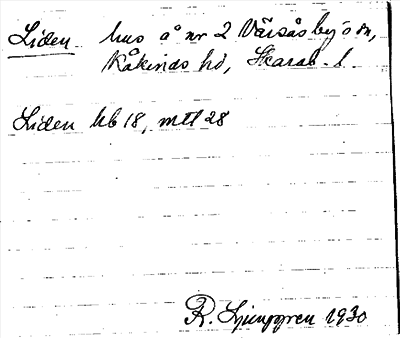 Liden hus å nr 2 Värsås by o sn,
Kåkinds hd, Skarab. l.
Liden hb 18, mtl 28
R. Ljunggren 1930